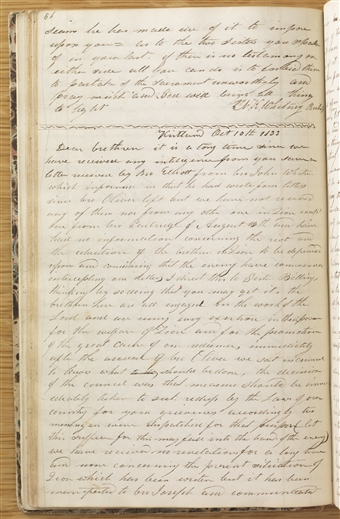 61
seems he has made use of it to impose
upon you as to the two Sisters you speak
of in your last if there is no testimony on
either side all you can do is to
to partake of the Sacrament unworthily and
pray much and God will bring all things
to light
Kirtland Oct 10th 1833
Dear brethren it is a long time since we
have received any inteligence from you save a
letter received by Bro Elliott from bro John Whitmer
which informed us that he had wrote four letters
since bro Oliver left but we have not received
any of them nor from any other one in Zion except
one from bro Partridge of August and have
had no information concerning the riot and
the situation of the brethren in Zion to be depended
upon and considering that the enemy have commenced
intercepting our letters I direct this to
thinking by so doing that you may get it the
brethren here are all engaged in the work of the
Lord and are using every exertion in their power
for the welfare of Zion and for the promotion
of the great cause of our redeemer immediately
after the arrival of bro Oliver we sat in council
to know what should be done the decision
of the council was that measures should be imme
diately taken to seek redress by the laws of your
country for your grievances accordingly two
messengers were dispatched for that purpose let
this suffice for this may fall into the hands of the enemy
we have received no revelations for a long time
and none concerning the present situation of
Zion which has been written but it has been
manifested to bro Joseph and communicated